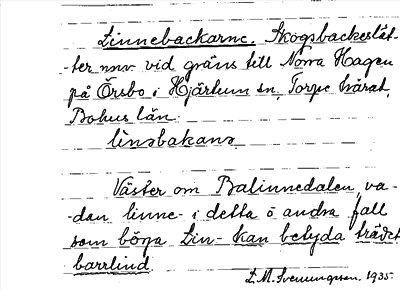 Linnebackarne. Skogsbackeslät-
-ter nnv. vid gräns till Norra Hagen
på Örsbo i Hjärtum sn, Torpe härad,
Bohus län.
linəbakana
Väster om Balinnedalen, va-
-dan linne- i detta o andra fall
som böra Lin- kan betyda trädet
barrlind.
L.M. Svenungsson. 1935.